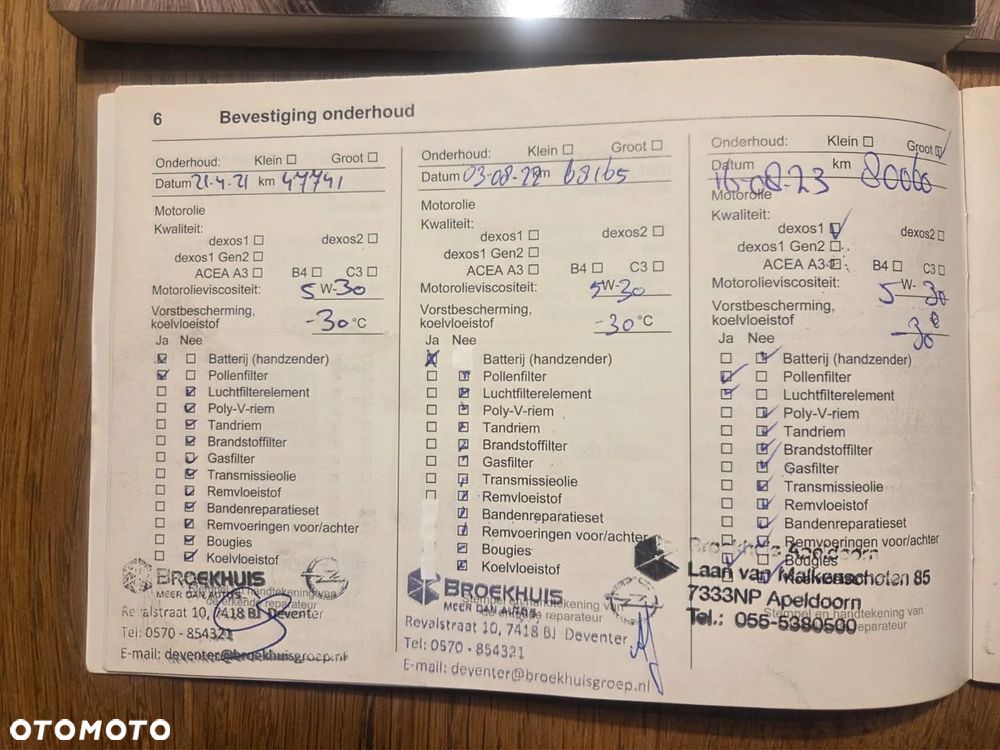 6 Bevestiging onderhoud
Onderhoud: Klein Groot
Datum 21-4-21 km 47741
Motorolie
Kwaliteit:
dexos1 dexos2
dexos1 Gen2
ACEA A3 B4 C3
Motorolieviscositeit: 5W-30
Vorstbescherming,
koelvloeistof -30 °C
Ja Nee
Batterij (handzender)
Pollenfilter
Luchtfilterelement
Poly-V-riem
Tandriem
Brandstoffilter
Gasfilter
Transmissieolie
Remvloeistof
Bandenreparatieset
Remvoeringen voor/achter
Bougies
Koelvloeistof
BROEKHUIS
MEER DAN AUTO'S
Stempel en handtekening van
de erkende reparateur
Revalstraat 10, 7418 BJ Deventer
Tel: 0570 - 854321
E-mail: deventer@broekhuisgroep.nl
Onderhoud: Klein Groot
Datum 03-08-22 km 68165
Motorolie
Kwaliteit:
dexos1 dexos2
dexos1 Gen2
ACEA A3 B4 C3
Motorolieviscositeit: 5W-30
Vorstbescherming,
koelvloeistof -30 °C
Ja Nee
Batterij (handzender)
Pollenfilter
Luchtfilterelement
Poly-V-riem
Tandriem
Brandstoffilter
Gasfilter
Transmissieolie
Remvloeistof
Bandenreparatieset
Remvoeringen voor/achter
Bougies
Koelvloeistof
BROEKHUIS
MEER DAN AUTO'S
Stempel en handtekening van
de erkende reparateur
Revalstraat 10, 7418 BJ Deventer
Tel: 0570 - 854321
E-mail: deventer@broekhuisgroep.nl
Onderhoud: Klein Groot
Datum 16-08-23 km 80060
Motorolie
Kwaliteit:
dexos1 dexos2
dexos1 Gen2
ACEA A3 B4 C3
Motorolieviscositeit: 5W-30
Vorstbescherming,
koelvloeistof -30
Ja Nee
Batterij (handzender)
Pollenfilter
Luchtfilterelement
Poly-V-riem
Tandriem
Brandstoffilter
Gasfilter
Transmissieolie
Remvloeistof
Bandenreparatieset
Remvoeringen voor/achter
Bougies
Broekhuis Apeldoorn
Laan van Malkenschoten 85
7333NP Apeldoorn
Stempel en handtekening van
reparateur
Tel.: 055-5380500
OTOMOTO